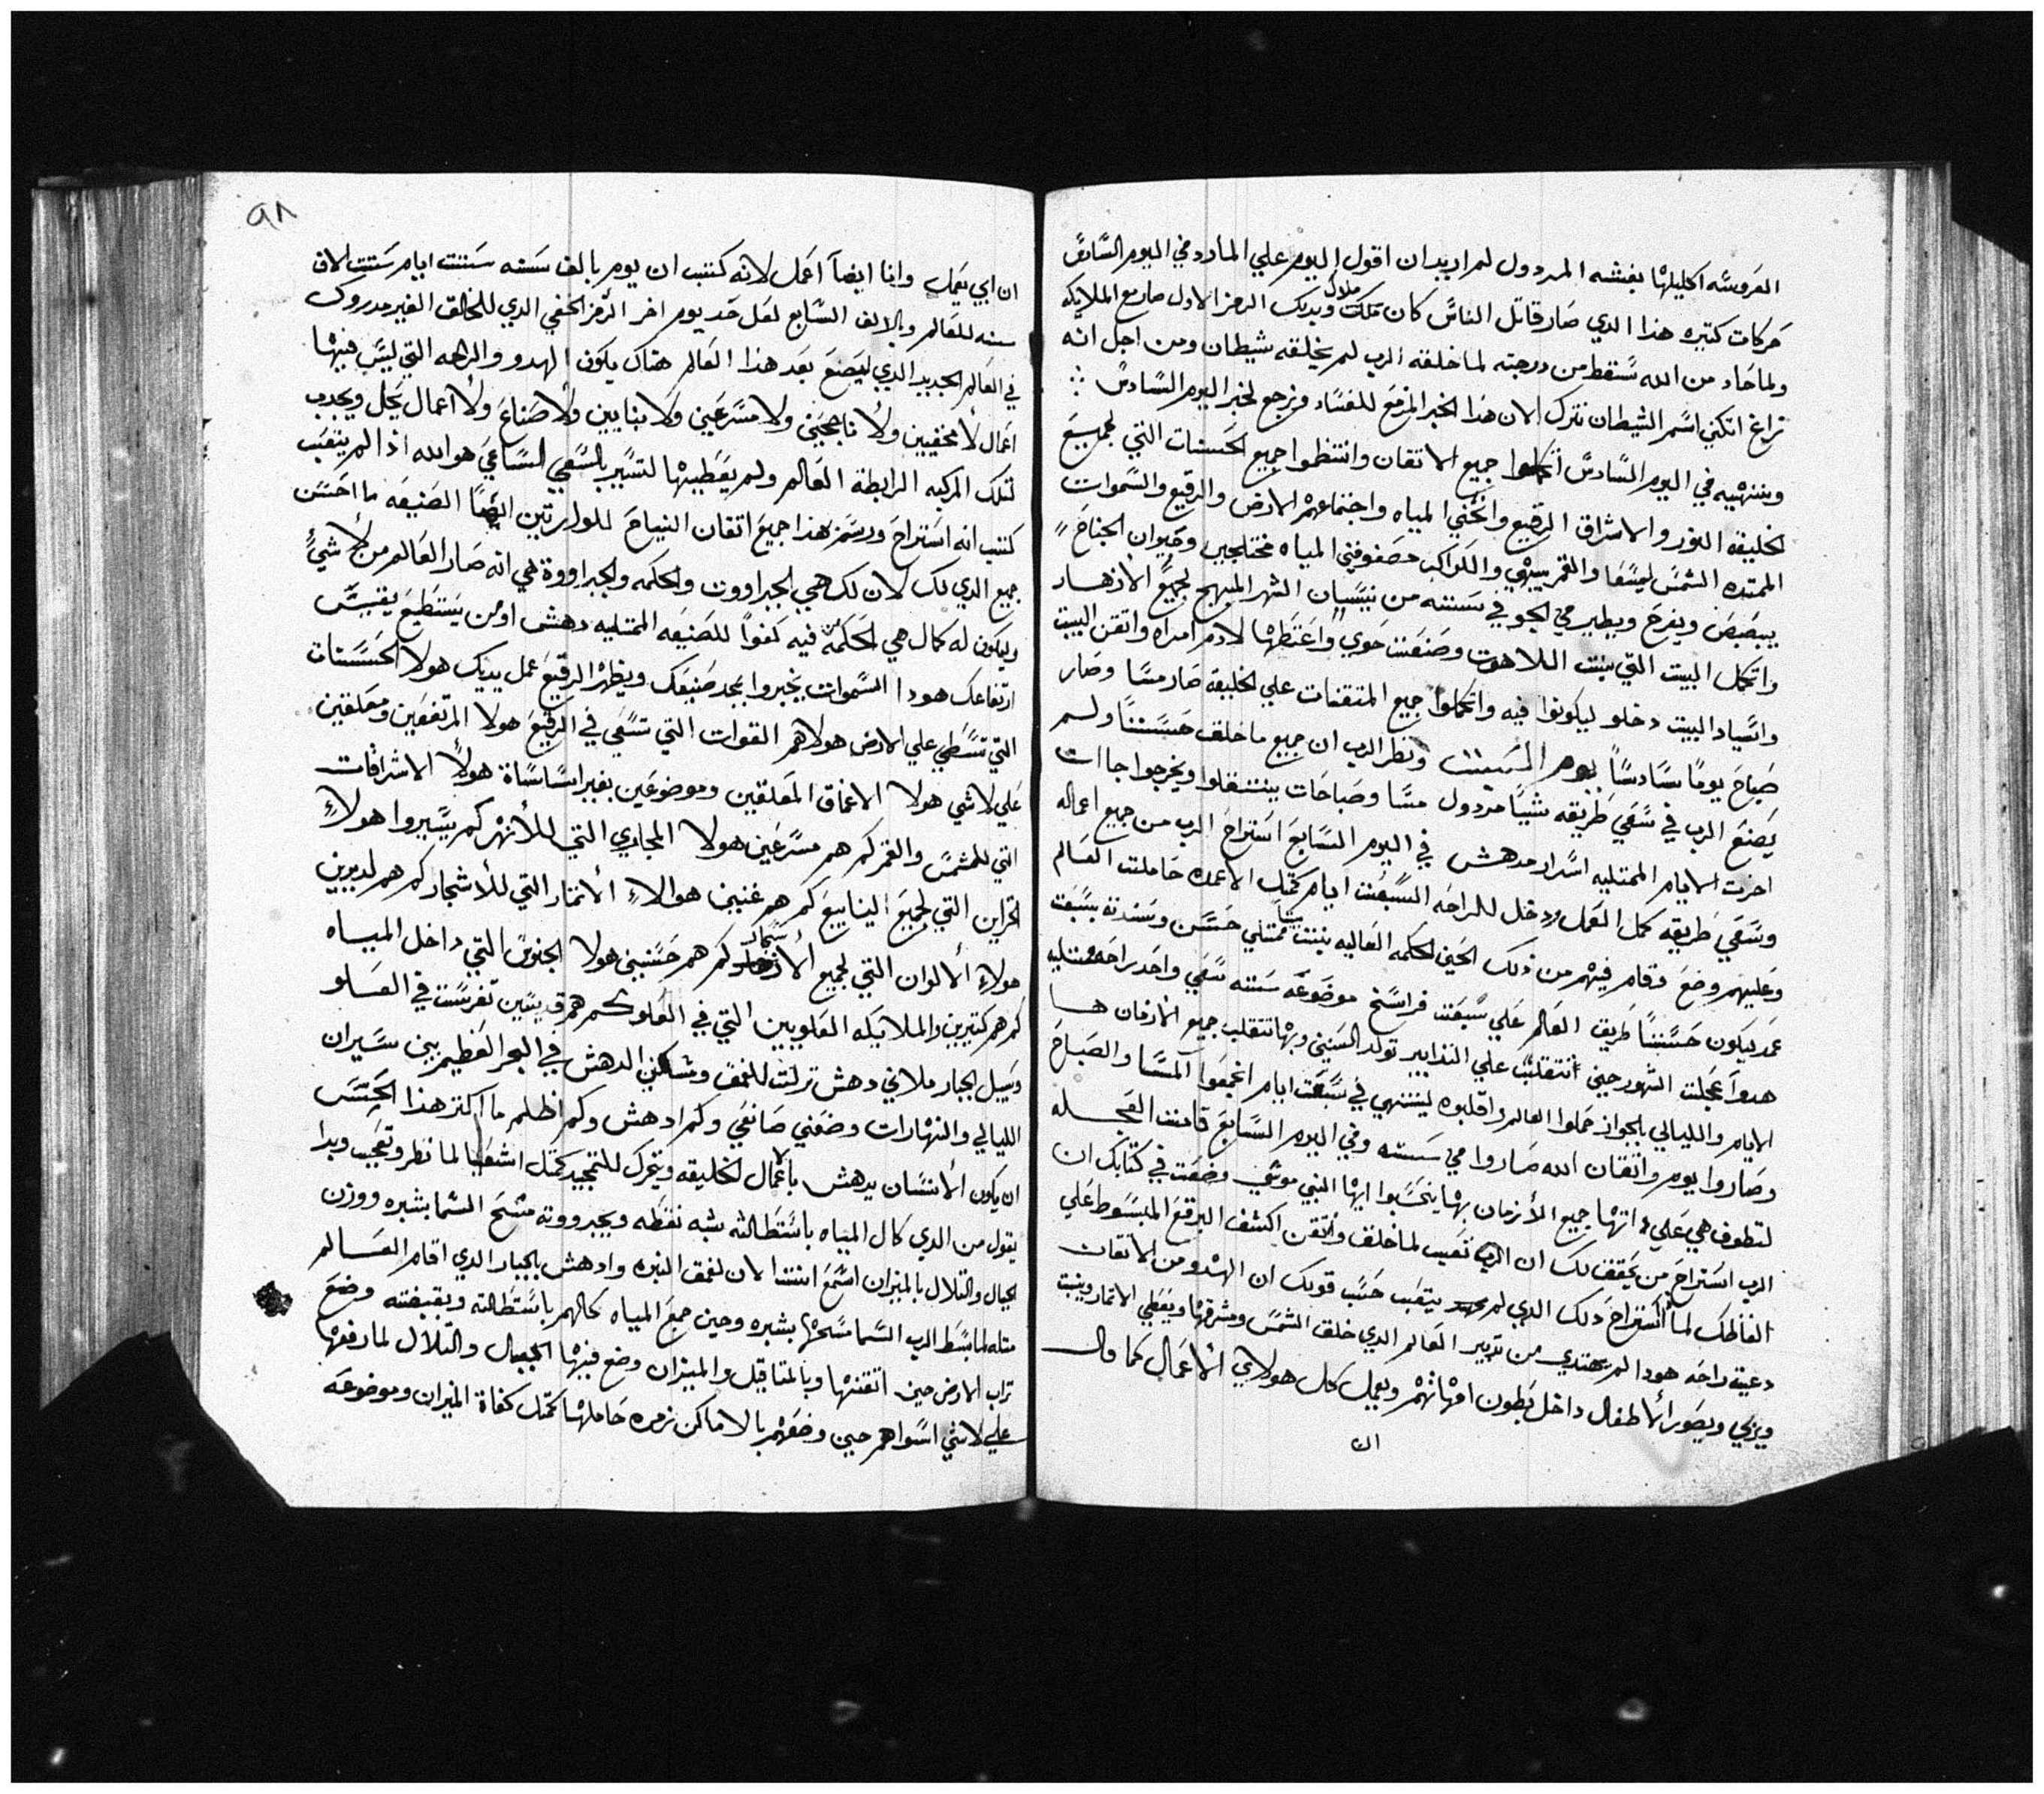 العروسه اكليلها بغشه المردول لم اريد ان اقول اليوم علي المارد في اليوم السادس
حركات كتيره هذا الدي صار قاتل الناس كان ملك ملاك وبديك الرمز الاول صار مع الملايكه
ولما حاد من الله سقط من درجته لما خلقه الرب لم يخلقه شيطان ومن اجل انه
زاغ اتكني اسم الشيطان نترك الان هذا الخبر المزمع للفساد ونرجع لخبر اليوم السادس
وبنتهيه في اليوم السادس اتكملوا جميع الاتقان وانتظموا جميع الحسنات التي لجميع
الخليقه النور والاشراق الرقيع وانحني المياه واجتماعهم الارض والرقيع والسموات
الممتده الشمس ليمشها والقمر بيهي والكواكب مصفوفين المياه مختلجين وحيوان الجناح
يبصبص ويفرح ويطير في الجو في سنته من نيسان الشهر المبهج لجميع الازهار
واتكمل البيت التي بنت اللاهوت وصنفت حوي واعتطها لادم امراه واتقن البيت
واسياد البيت دخلو ليكونوا فيه واتكملوا جميع المتقنات علي الخليقه صار مسا وصار
صباح يومًا سادسًا يوم السبت ونظر الرب ان جميع ما خلق حسنًا ولم
يصنع الرب في سعي طريقه شيئًا مردول مسا وصباحات بيتنقلوا ويخرجوا جاات
اخرت الايام الممتليه اسرار مدهش في اليوم السابع استراح الرب من جميع اعماله
وسعي طريقه كمل العمل ودخل للراحه السبعت ايام كمتل الاعمده حاملت العالم
وعليهم وضع وقام فيهم من ذلك الحين الحكمه العاليه بنت بيتًا ممتلي حسن وسندته بسبعت
عمد ليكون حسنًا طريق العالم علي سبعت فراسخ موضوعه سته سعي واحد راحه ممتليه
هدوا عجلت الشهور حين انتقلبت علي التدابير تولد السنين وبها تتقلب جميع الازمان ها
الايام والليالي بالجواز حملوا العالم واقلبوه لينتهي في سبعت ايام اتجمعوا المسا والصباح
وصاروا يوم واتقان الله صاروا في سته وفي اليوم السابع قامت العجله
لتطوف هي علي انتها جميع الازمان بها يتحسبوا ايها النبي موسي وضعت في كتابك ان
الرب استراح من يحقق لك ان الرب تعب لما خلق واتقن اكشف البرقع المبسوط علي
الفاظك لما استراح ذلك الدي لم يتعب حسب قولك ان الهدو من الاتقان
دعيته راحه هودا لم يهتدي من تدبير العالم الدي خلق الشمس ومشرقها ويعطي الاتمار وينبت
ويربي ويصور الاطفال داخل بطون امهاتهم ويعمل كل هولاي الاعمال كما قال
ان
٩٨
ان ابي يعمل وانا ايضًا اعمل لانه كتب ان يوم بالف سنه ستت ايام ستت الاف
سنه للعالم وبالالف السابع لعل حد يوم اخر الرمز الخفي الدي للخالق الغير مدروك
في العالم الجديد الدي ليصنع بعد هذا العالم هناك يكون الهدو والراحه التي ليس فيها
اعمال لا مخفيين ولا ناجحين ولا مسرعين ولا بنايين ولا صناع ولا اعمال يحل ويجدب
لتلك المركبه الرابطة العالم ولم يعطيها لتسير بالسعي الساعي هو الله اذا لم يتعب
كتب انه استراح ورسم هذا جميع اتقان النياح للوارتين ايضًا الصنيعه ما احسن
جميع الدي لك لان لك هي الجبراووت والحكمه والجبراووة هي انه صار العالم من لا شيء
وليكون له كمال هي الحكمه فيه كفوًا للصنيعه الممتليه دهش او من يستطيع يقيس
ارتفاعك هودا السموات يخبروا بمجد صنيعك ويظهر الرقيع عمل يديك هولا الحسنات
التي تسطي علي الارض هولا هم القوات التي تسعي في الرقيع هولا المرتفعين ومعلقين
علي لا شي هولا الاعماق المعلقين وموضوعين بغير اساساة هولا الاشراقات
التي للشمس والقمر كم هم مسرعين هولا المجاري التي للانهر كم يسيروا هولاء
الخزاين التي لجميع الينابيع كم هم غنيين هوالاء الاتمار التي للاشجار كم هم لديدين
هولاء الالوان التي لجميع الازهار كم هم حسنين هولا الجنوس التي داخل المياه
كم هم كتيرين والملايكه العلويين التي في العلو كم هم قديسين تفرست في العلو
وسبل الجبار ملاني دهش نزلت للغمق ومسكني الدهش في البحر العظيم بين سيران
الليالي والنهارات وضعني صانعي وكم ادهش وكم اظلم ما اكتر هذا الحسن
ان يكون الانسان يدهش بالاعمال الخليقه ويتحرك للتمجيد كمتل اشعيا لما نظر وتعجب وبدا
يقول من الدي كال المياه باستطالته شبه نقطه وبجبرووته مسح السما بشبره ووزن
الجبال والتلال بالميزان اسمع انت الان لغمق النبره وادهش بالجبار الدي اقام العالم
متله لما بسط الرب السما مسحها بشبره وحين جمع المياه كالهم باستطالته وبقبضته وضع
تراب الارض حين اتقنها وبالمتاقيل والميزان وضع فيها الجبال والتلال لما رفعها
علي لا شي اسواهم حين وضعهم بالاماكن نزمره حاملها كمتل كفاة الميزان وموضوعه